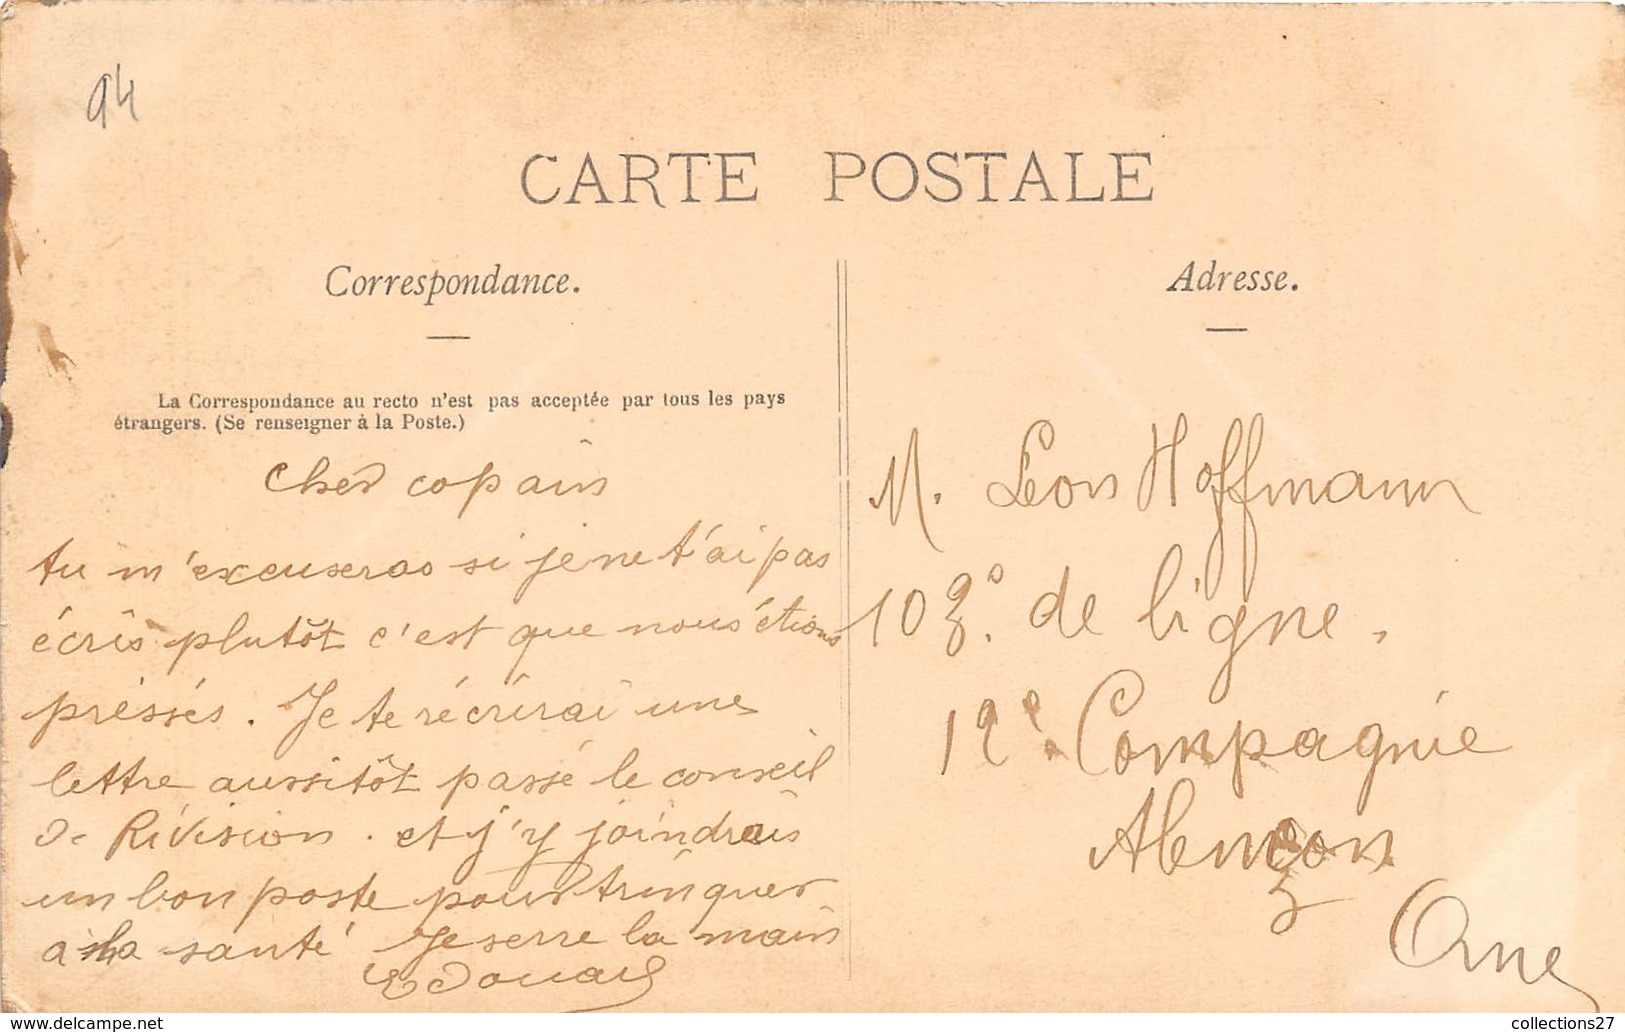 94
CARTE POSTALE
Correspondance.
La Correspondance au recto n'est pas acceptée par tous les pays
étrangers. (Se renseigner à la Poste.)
Cher copain
tu m'excuseras si je ne t'ai pas
écris plutôt c'est que nous étions
préssés. Je te récrirai une
lettre aussitôt passé le conseil
de Révision. et j'y joindrais
un bon poste pour trinquer
à la santé Je serre la main
Edouard
Adresse.
M. Léon Hoffmann
103e. de ligne.
12e Compagnie
Alençon
Orne
delcampe.net
collections27